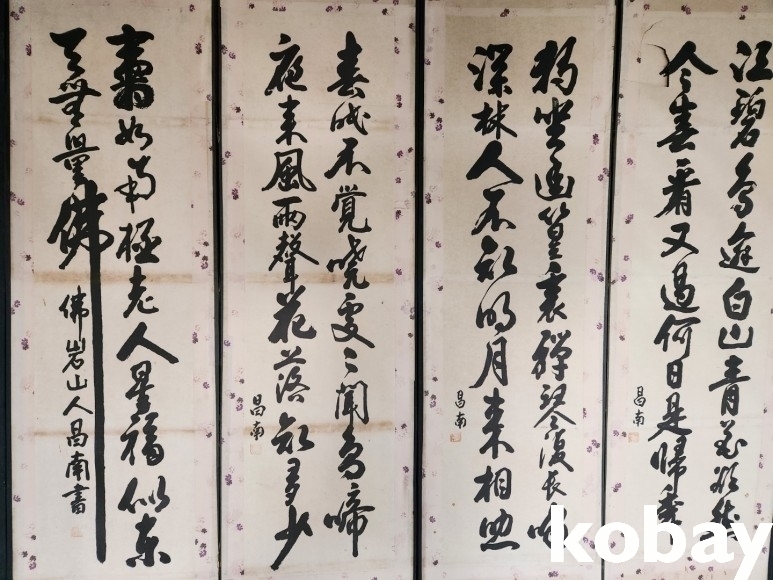 江碧鳥逾白山青花欲然
今春看又過何日是歸年
昌南
獨坐幽篁裏彈琴復長嘯
深林人不知明月來相照
昌南
春眠不覺曉處〻聞鳥啼
夜來風雨聲花落知多少
昌南
壽如南極老人星福似東
天無量佛
佛岩山人昌南書
kobay